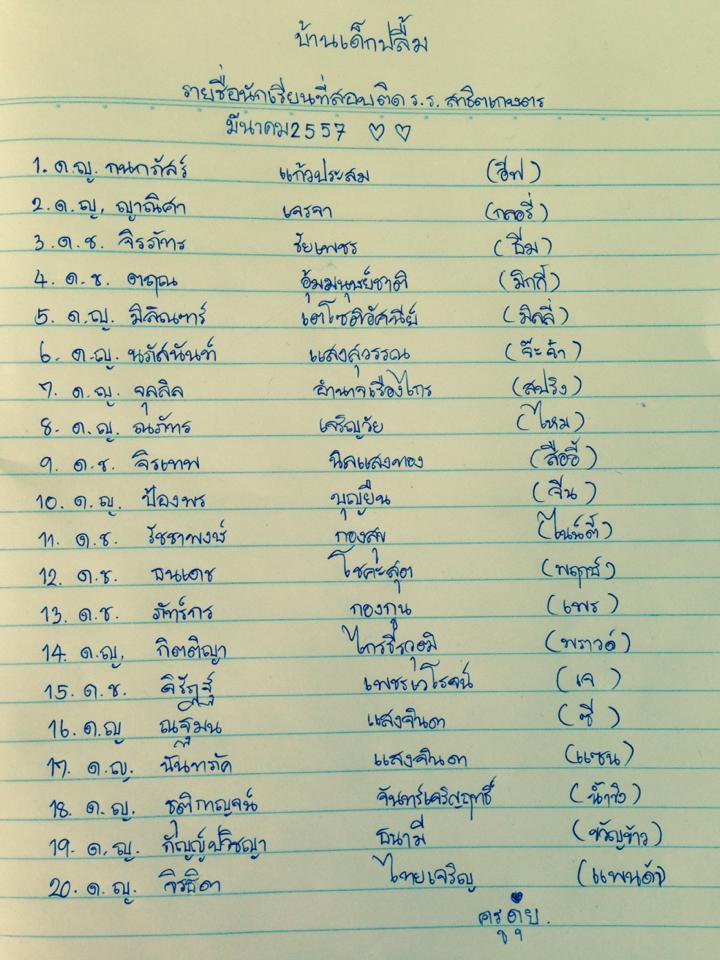 บ้านเด็กปลื้ม
รายชื่อนักเรียนที่สอบติด ร.ร. สาธิตเกษตร
มีนาคม 2557 ♡ ♡
1. ด.ญ. กนกภัสร์ แก้วประสม (อีฟ)
2. ด.ญ. ญาณิศา เจรจา (กลอรี่)
3. ด.ช. จิรภัทร ชัยเพชร (ธีม)
4. ด.ช. ตฤณ อุ้มมนุษย์ชาติ (มิกกี้)
5. ด.ญ. มิลิณฑร์ เตโชติอัศนีย์ (มิลลี่)
6. ด.ญ. นภัสนันท์ แสงสุวรรณ (จ๊ะจ๋า)
7. ด.ญ. จุลลิล อำนาจเรืองไกร (สปริง)
8. ด.ญ. ณภัทร เจริญวัย (ไหม)
9. ด.ช. จิรเทพ นิลแสงทอง
10. ด.ญ. ป้องพร บุญยืน (จีน)
11. ด.ช. รัชชาพงษ์ กองสุข (ไนน์ตี้)
12. ด.ช. ธนเดช โชคะสุต (พฤกษ์)
13. ด.ช. ภัทร์กร กองกูน (เพร)
14. ด.ญ. กิตติญา ไกรชีรวุฒิ (พราวด์)
15. ด.ช. ศิรัฏฐ์ เพชรเวโรจน์ (เจ)
16. ด.ญ ณฐมน แสงจินดา (ซี)
17. ด.ญ. นันทภัค แสงจินดา (แซน)
18. ด.ญ. ชุติกาญจน์ จันทร์เจริญฤทธิ์ (น้ำขิง)
19. ด.ญ. กัญญ์ปวิชญา ธนามี (ขวัญข้าว)
20. ด.ญ. จิรธิดา ไทยเจริญ (แพนด้า)
ครูตุ้ย.